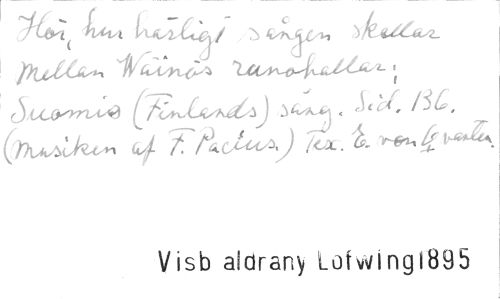 Hör, hur härligt sången skallar
mellan Wäinös runohallar;
Suomis (Finlands) sång. Sid. 136.
(musiken af F. Pacius.) Tex. E. von Qvanten.
Visb aldrany Lofwing1895